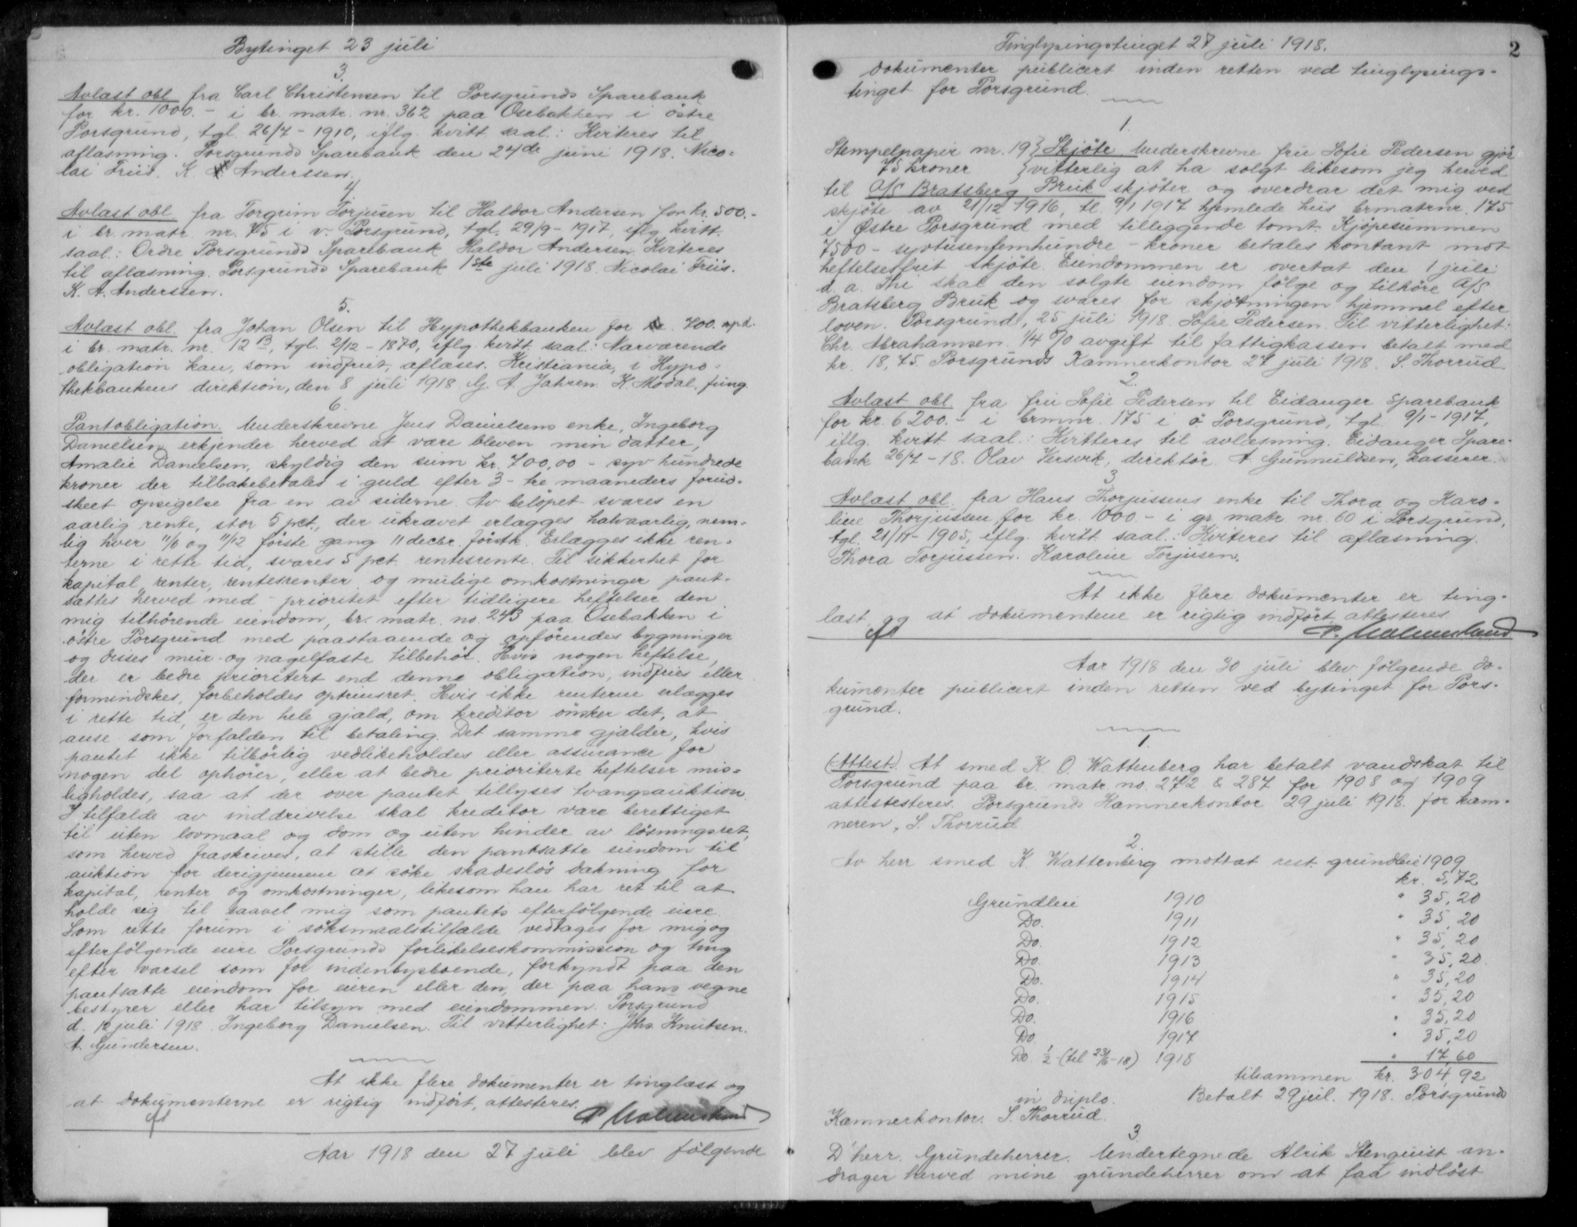 Bytinget 23 juli
3.
Avlæst obl. fra Carl Christensen til Porsgrunds Sparebank
for kr. 1000.- i br. matr. nr. 362 paa Osebakken i östre
Porsgrund, tgl. 26/7 - 1910, iflg. kvitt saal: Kviteres til
aflæsning. Porsgrunds Sparebank den 24de juni 1918. Nico-
lai Friis. K A Anderssen.
4.
Avlæst obl. fra Torgrim Torjusen til Haldor Andersen for kr. 500.-
i br. matr. nr. 75 i v. Porsgrund, tgl. 29/9 - 1917, iflg. kvitt
saal: Ordre Porsgrunds Sparebank Haldor Andersen. Kviteres
til aflæsning. Porsgrunds Sparebank 1ste juli 1918. Nicolai Friis.
K. A. Anderssen.
5.
Avlæst obl. fra Johan Olsen til Hypothekbanken for 400. spd.
i br. matr. nr. 12 B, tgl. 2/12 - 1870, iflg. kvitt saal: Nærværende
obligation kan, som indfriet, aflæses. Kristiania, i Hypo-
thekbankens direktion, den 8 juli 1918 G. A. Jahren. K. Modal. fung
6.
Pantobligation. Underskrevne Jens Danielsens enke, Ingeborg
Danielsen, erkjender herved at være bleven min datter,
Amalie Danielsen, skyldig den sum kr. 700,00 - syv hundrede
kroner der tilbakebetales i guld efter 3 - tre maaneders forud-
skeet opsigelse fra en av siderne. Av beløpet svares en
aarlig rente, stor 5 pct, der ukrævet erlægges halvaarlig, nem-
lig hver 11/6 og 11/12 første gang 11 decbr. førstk. Erlægges ikke ren-
terne i rette tid, svares 5 pct rentesrente. Til sikkerhet for
kapital, renter, rentesrenter og mulige omkostninger pant-
sættes herved med - prioritet efter tidligere heftelser den
mig tilhørende eiendom, br. matr. no 243 paa Osebakken i
østre Porsgrund med paastaaende og opførendes bygninger
og disses mur- og nagelfaste tilbehør. Hvis nogen heftelse,
der er bedre prioritert end denne obligation, indfries eller
formindskes, forbeholdes oprinsret. Hvis ikke renterne erlægges
i rette tid, er den hele gjæld, om kreditor ønsker det, at
anse som forfalden til betaling. Det samme gjælder, hvis
pantet ikke tilbørlig vedlikeholdes eller assurance for
nogen del ophører, eller at bedre prioriterte heftelser mis-
ligholdes, saa at der over pantet tillyses tvangsauktion.
I tilfælde av inddrivelse skal kreditor være berettiget
til uten lovmaal og dom og uten hinder av løsningsret,
som herved fraskrives, at stille den pantsatte eiendom til
auktion for derigjennem at søke skadesløs dækning for
kapital, renter og omkostninger, likesom han har ret til at
holde sig til saavel mig som pantets efterfølgende eiere.
Som rette forum i søksmaalstilfælde vedtages for mig og
efterfølgende eiere Porsgrunds forlikelseskommission og ting
efter varsel som for indenbysboende, forkyndt paa den
pantsatte eiendom for eieren eller den, der paa hans vegne
bestyrer eller har tilsyn med eiendommen. Porsgrund
d. juli 1918. Ingeborg Danielsen. Til vitterlighet: Johs. Knutsen.
A. Gundersen.
At ikke flere dokumenter er tinglæst og
at dokumenterne er rigtig indført, attesteres.
P. Malmerlund
Aar 1918 den 27 juli blev følgende
Tinglysingstinget 27 juli 1918.
2
dokumenter publicert inden retten ved tinglysings-
tinget for Porsgrund.
1.
Stempelpapir nr. 19 } Skjøte. Underskrevne fru Sofie Pedersen gjør
75 kroner } vitterlig at ha solgt likesom jeg herved
til A/S Bratsberg Bruk skjøter og overdrar det mig ved
skjøte av 21/12 1916, tl. 9/1 1917 hjemlede hus br matr nr. 175
i Østre Porsgrund med tilliggende tomt. Kjøpesummen
7500 - syvtusenfemhundre - kroner betales kontant mot
heftelsesfrit skjøte. Eiendommen er overtat den 1 juli
d. a. Thi skal den solgte eiendom følge og tilhøre A/S
Bratsberg Bruk og svares for skjøtningen hjemmel efter
loven. Porsgrund, 25 juli 1918. Sofie Pedersen. Til vitterlighet:
Chr. Abrahamsen. 1/4 % avgift til fattigkassen betalt med
kr. 18,75. Porsgrunds Kæmnerkontor 27 juli 1918. S. Thorrud
2.
Avlæst obl. fra fru Sofie Pedersen til Eidanger Sparebank
for kr. 6200.- i br mnr. 175 i ø Porsgrund, tgl. 9/1 - 1917,
iflg. kvitt saal: Kvitteres til avlæsning. Eidanger Spare-
bank 26/7 - 18. Olav Versvik, direktør. A Gunnulfsen, kasserer.
3
Avlæst obl. fra Hans Thorjussens enke til Thora og Karo-
line Thorjussen for kr. 1000.- i gr. matr. nr. 60 i Porsgrund,
tgl. 21/11 - 1905, iflg. kvitt saal: Kviteres til aflæsning.
Thora Torjussen. Karoline Torjusen.
At ikke flere dokumenter er ting-
læst og at dokumentene er rigtig indført attesteres
P. Malmerlund
Aar 1918 den 30 juli blev følgende do-
kumenter publicert inden retten ved bytinget for Pors-
grund.
1.
(Attest). At smed K. O. Wattenberg har betalt vandskat til
Porsgrund paa br. matr. no. 272 & 287 for 1908 og 1909
attestesteres. Porsgrunds Kæmnerkontor 29 juli 1918. for kæm-
neren, S. Thorrud
2.
Av herr smed K Wattenberg mottat rest grundleie 1909
kr. 5,72
Grundleie 1910 " 35,20
Do. 1911 " 35,20
Do. 1912 " 35,20
Do. 1913 " 35,20
Do. 1914 " 35,20
Do. 1915 " 35,20
Do. 1916 " 35,20
Do 1917 " 35,20
Do 1/2 (til 23/6 - 18) 1918 " 17,60
tilsammen kr. 304,92
in duplo. Betalt 29 juil. 1918. Porsgrunds
Kæmnerkontor. S. Thorrud.
3
D'herr. Grundeherrer. Undertegnede Alrik Stenquist an-
drager herved mine grundeherrer om at faa indløst